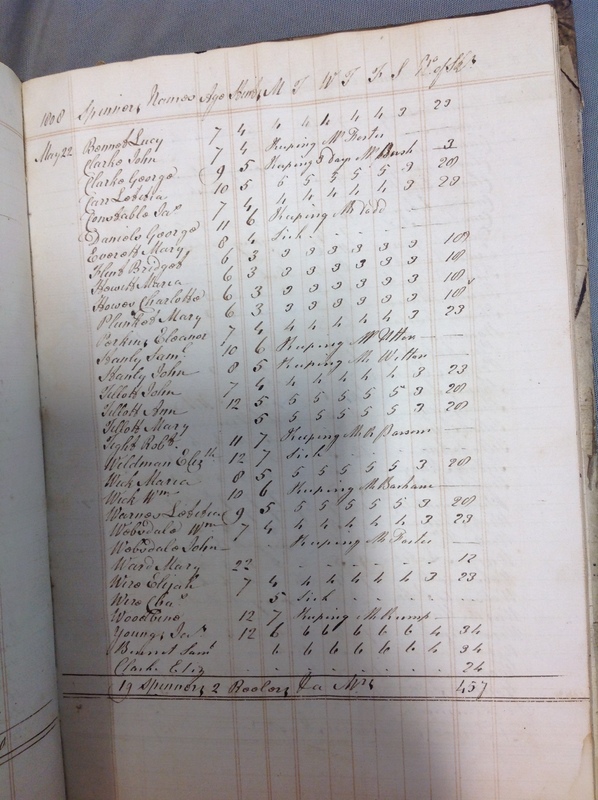 1808 Spinners Names Age Stint M T W T F S No of Sks
May 22 Bennet Lucy 7 4 4 4 4 4 4 3 23
Clarke John 7 4 Keeping Mr Foster —
Clarke George 9 5 Keeping 5 days Mr Bush — 3
Carr Lobetia 10 5 6 5 5 5 5 3 28
Constable Jas 7 4 4 4 4 4 4 3 23
Daniels George 11 6 Keeping Mr Dodd —
Everett Mary 8 4 Sick
Flint Bridget 6 3 3 3 3 3 3 3 18
Howett Maria 6 3 3 3 3 3 3 3 18
Howes Charlotte 6 3 3 3 3 3 3 3 18
Plunket Mary 6 3 3 3 3 3 3 3 18
Perkins Eleanor 7 4 4 4 4 4 4 3 23
Stanly Saml 10 6 Keeping Mr Utton —
Stanly John 8 5 Keeping Mr Wetton
Tillott John 7 4 4 4 4 4 4 3 23
Tillott Ann 12 5 5 5 5 5 5 3 28
Tillott Mary 5 5 5 5 5 5 3 28
Tight Robt 11 7 Keeping Mr Parson —
Weldman Elizth 12 7 Sick
Wick Maria 8 5 5 5 5 5 5 3 28
Wick Wm 10 6 Keeping Mr Barham —
Warnes Lobetia 9 5 5 5 5 5 5 3 28
Wobsdale Wm 7 4 4 4 4 4 4 3 23
Wobsdale John Keeping Mr Foster —
Ward Mary 22 12
Wire Elijah 7 4 4 4 4 4 4 3 23
Wire Chas 5 Sick
Woodbine 12 7 Keeping Mr Crump —
Young Jas 12 6 6 6 6 6 6 4 34
Bennet Saml 6 6 6 6 6 6 4 34
Clark Eliz 24
19 Spinners 2 Reelers 457